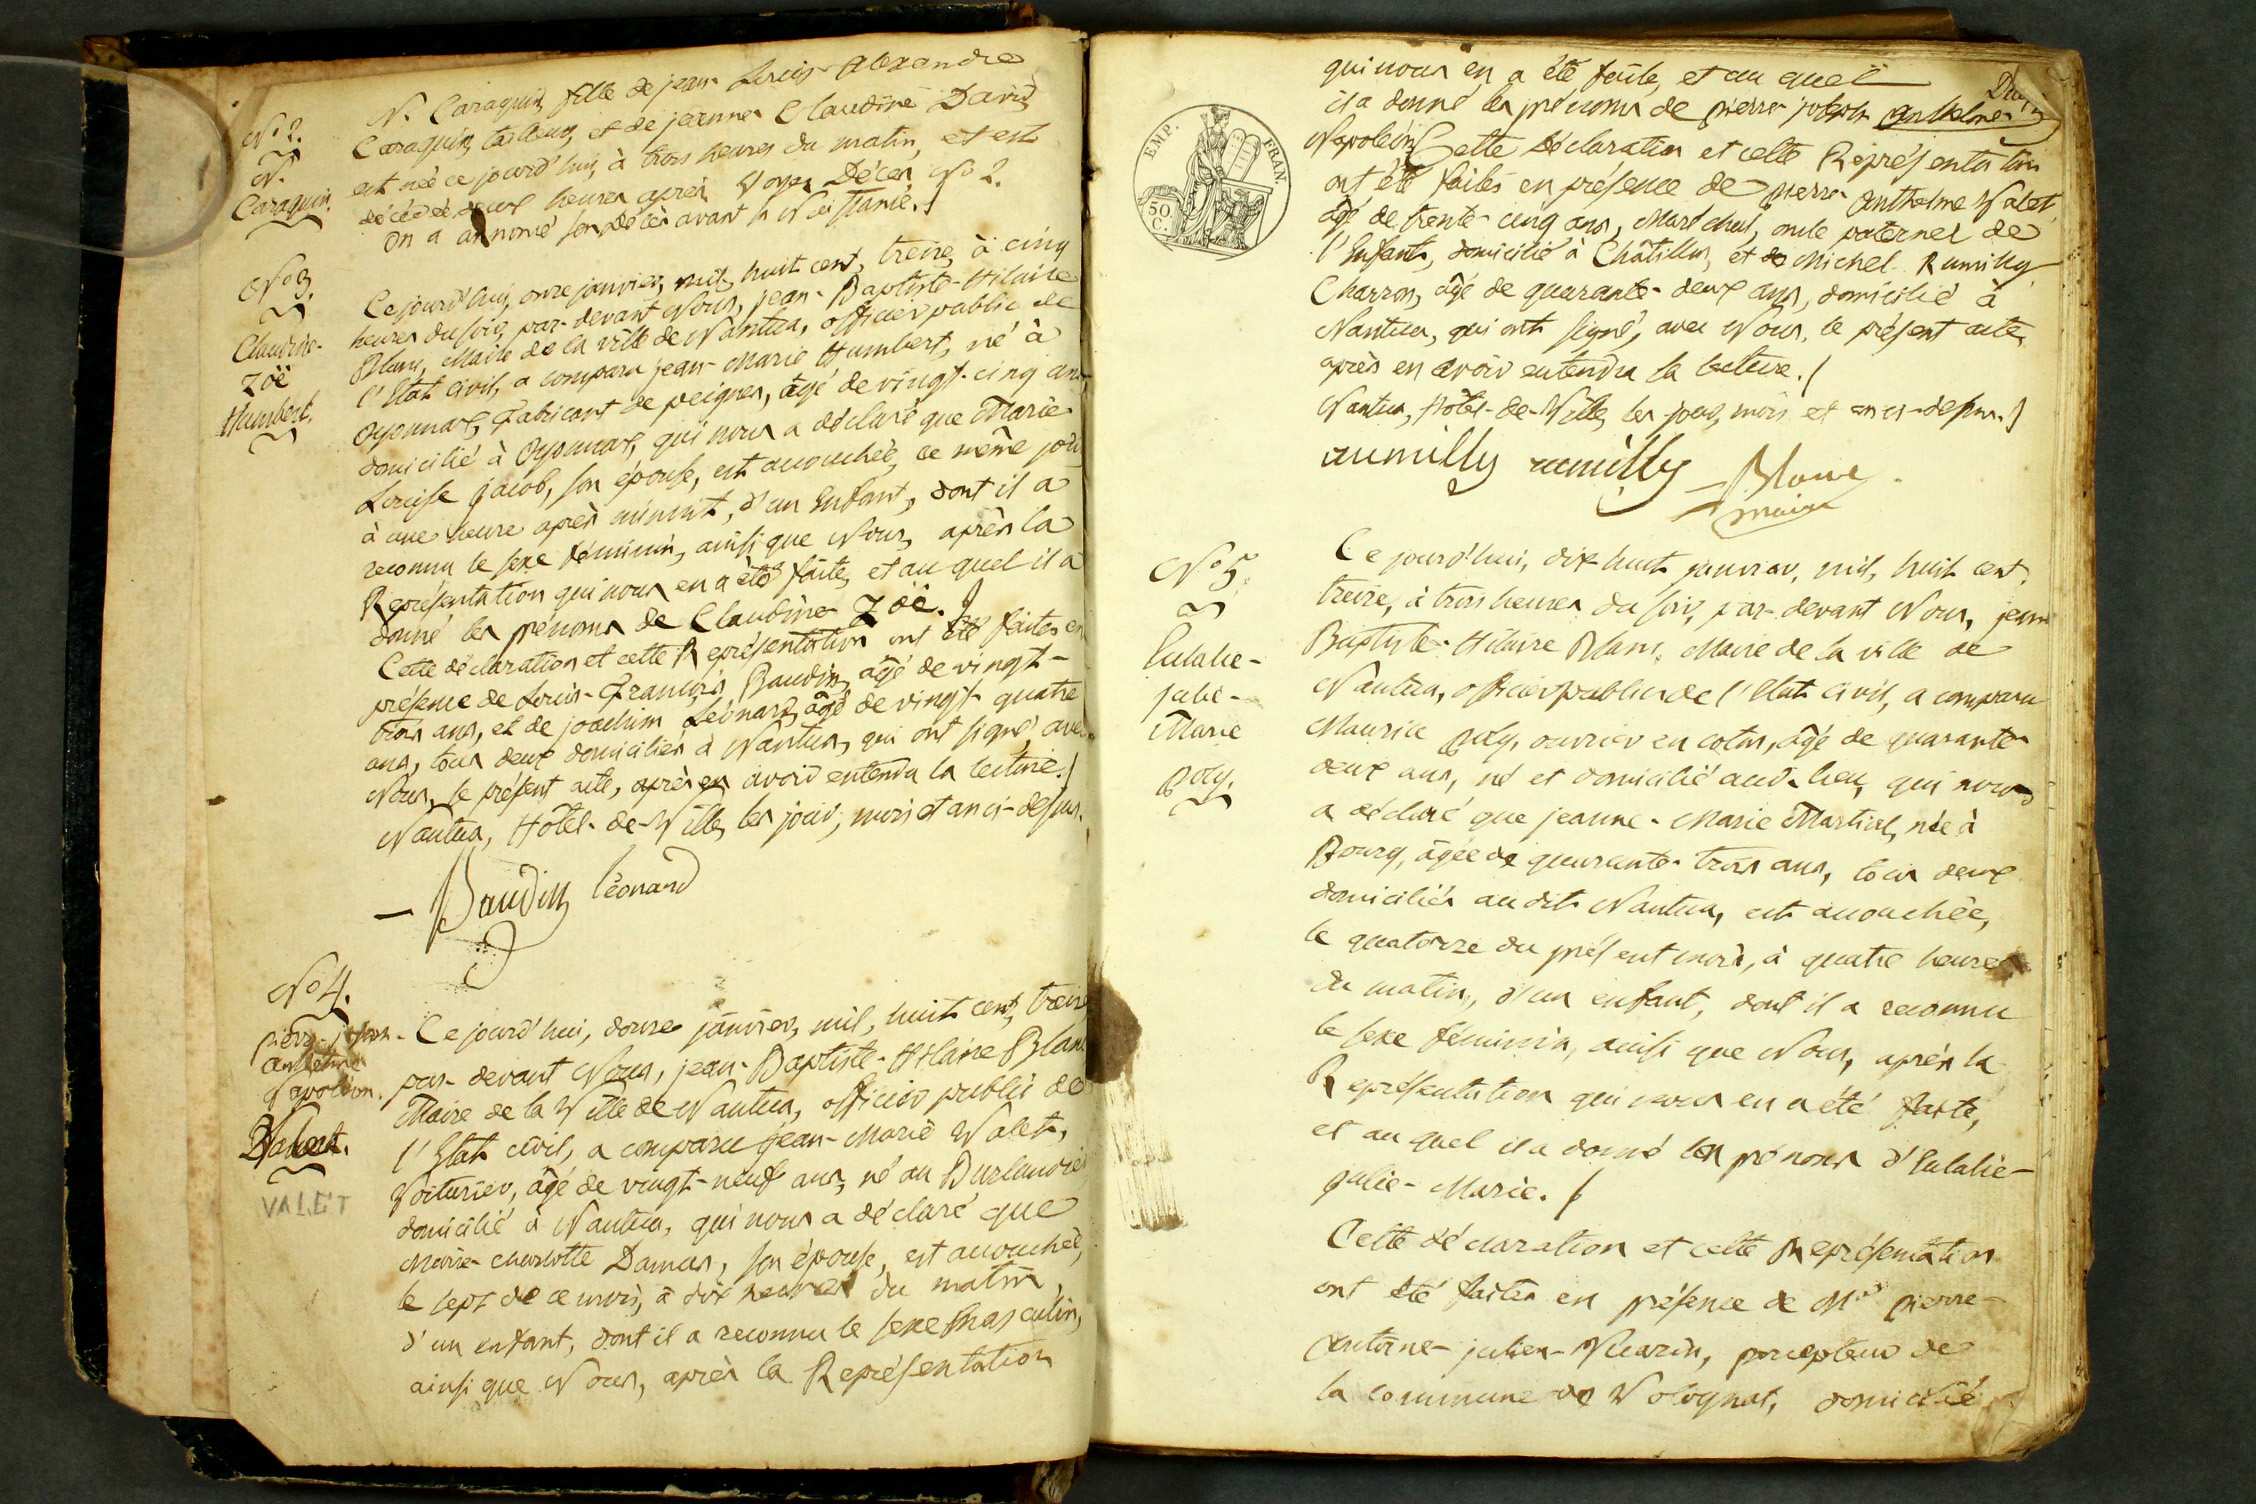 N° 2.
N.
Caraquin.
N. Caraquin, fille de jean Louis Alexandre
Caraquin, tailleur, et de jeanne Claudine David
est née ce jourd'hui, à trois heures du matin, et est
décédée deux heures après. Voyez Décès N° 2.
On a annoncé son décès avant sa Naissance./
N° 3.
Claudine-
Zoë
Humbert.
Ce jourd'hui, onze janvier, mil, huit cent, treize, à cinq
heures du soir, par-devant Nous, jean-Baptiste-Hilaire
Blanc, Maire de la ville de Nantua, officier public de
l'Etat civil, a comparu jean-Marie Humbert, né à
Oyonnax, Fabricant de peignes, âgé de vingt-cinq ans,
domicilié à Oyonnax, qui nous a déclaré que Marie
Louise Jacob, son épouse, est accouchée, ce même jour
à une heure après minuit, d'un Enfant, dont il a
reconnu le sexe féminin, ainsi que Nous, après la
Représentation qui nous en a été faite, et au quel il a
donné les prénoms de Claudine Zoë./
Cette déclaration et cette Représentation ont été faites en
présence de Louis-François Baudin, âgé de vingt-
trois ans, et de joachim Léonard, âgé de vingt-quatre
ans, tous deux domiciliés à Nantua, qui ont signé, avec
Nous, le présent acte, après en avoir entendu la lecture./
Nantua, Hôtel-de-Ville, les jour, mois et an ci-dessus.
Baudin Léonard
N° 4.
pierre-joseph-
anthelme
Napoléon.
Valet.
VALET
Ce jourd'hui, douze janvier, mil, huit cent, treize
par-devant Nous, jean-Baptiste-Hilaire Blanc
Maire de la Ville de Nantua, officier public de
l'Etat civil, a comparu jean-Marie Valet,
Voiturier, âgé de vingt-neuf ans, né au Burlandier
domicilié à Nantua, qui nous a déclaré que
Marie-Charlotte Damas, son épouse, est accouchée,
le sept de ce mois, à dix heures du matin,
d'un enfant, dont il a reconnu le sexe Masculin,
ainsi que Nous, après la Représentation
qui nous en a été faite, et au quel
il a donné les prénoms de pierre joseph anthelme
Napoléon. Cette déclaration et cette Représentation
ont été faites en présence de pierre Anthelme Valet,
âgé de trente-cinq ans, Maréchal, oncle paternel de
l'Enfant, domicilié à Châtillon, et de Michel Rumilly
Charron, âgé de quarante-deux ans, domicilié à
Nantua, qui ont signé, avec Nous, le présent acte,
après en avoir entendu la lecture./
Nantua, Hôtel-de-Ville, les jour, mois et an ci-dessus./
EMP. FRAN.
50 C.
rumilly Blanc
maire
N° 5.
Eulalie-
julie-
Marie
Poly.
Ce jourd'hui, dix huit janvier, mil, huit cent,
treize, à trois heures du soir, par-devant Nous, jean
Baptiste-Hilaire Blanc, Maire de la ville de
Nantua, officier public de l'Etat civil, a comparu
Maurice Poly, ouvrier en coton, âgé de quarante-
deux ans, né et domicilié aud. lieu, qui nous
a déclaré que jeanne-Marie Martinet, née à
Bourg, âgée de quarante-trois ans, tous deux
domiciliés audit Nantua, est accouchée,
le quatorze du présent mois, à quatre heures
du matin, d'un enfant, dont il a reconnu
le sexe féminin, ainsi que Nous, après la
Représentation qui nous en a été faite,
et au quel il a donné les prénoms d'Eulalie-
julie-Marie./
Cette déclaration et cette Représentation
ont été faites en présence de Mrs pierre-
Antoine-julien percepteur de
la commune de Volognat, domicilié